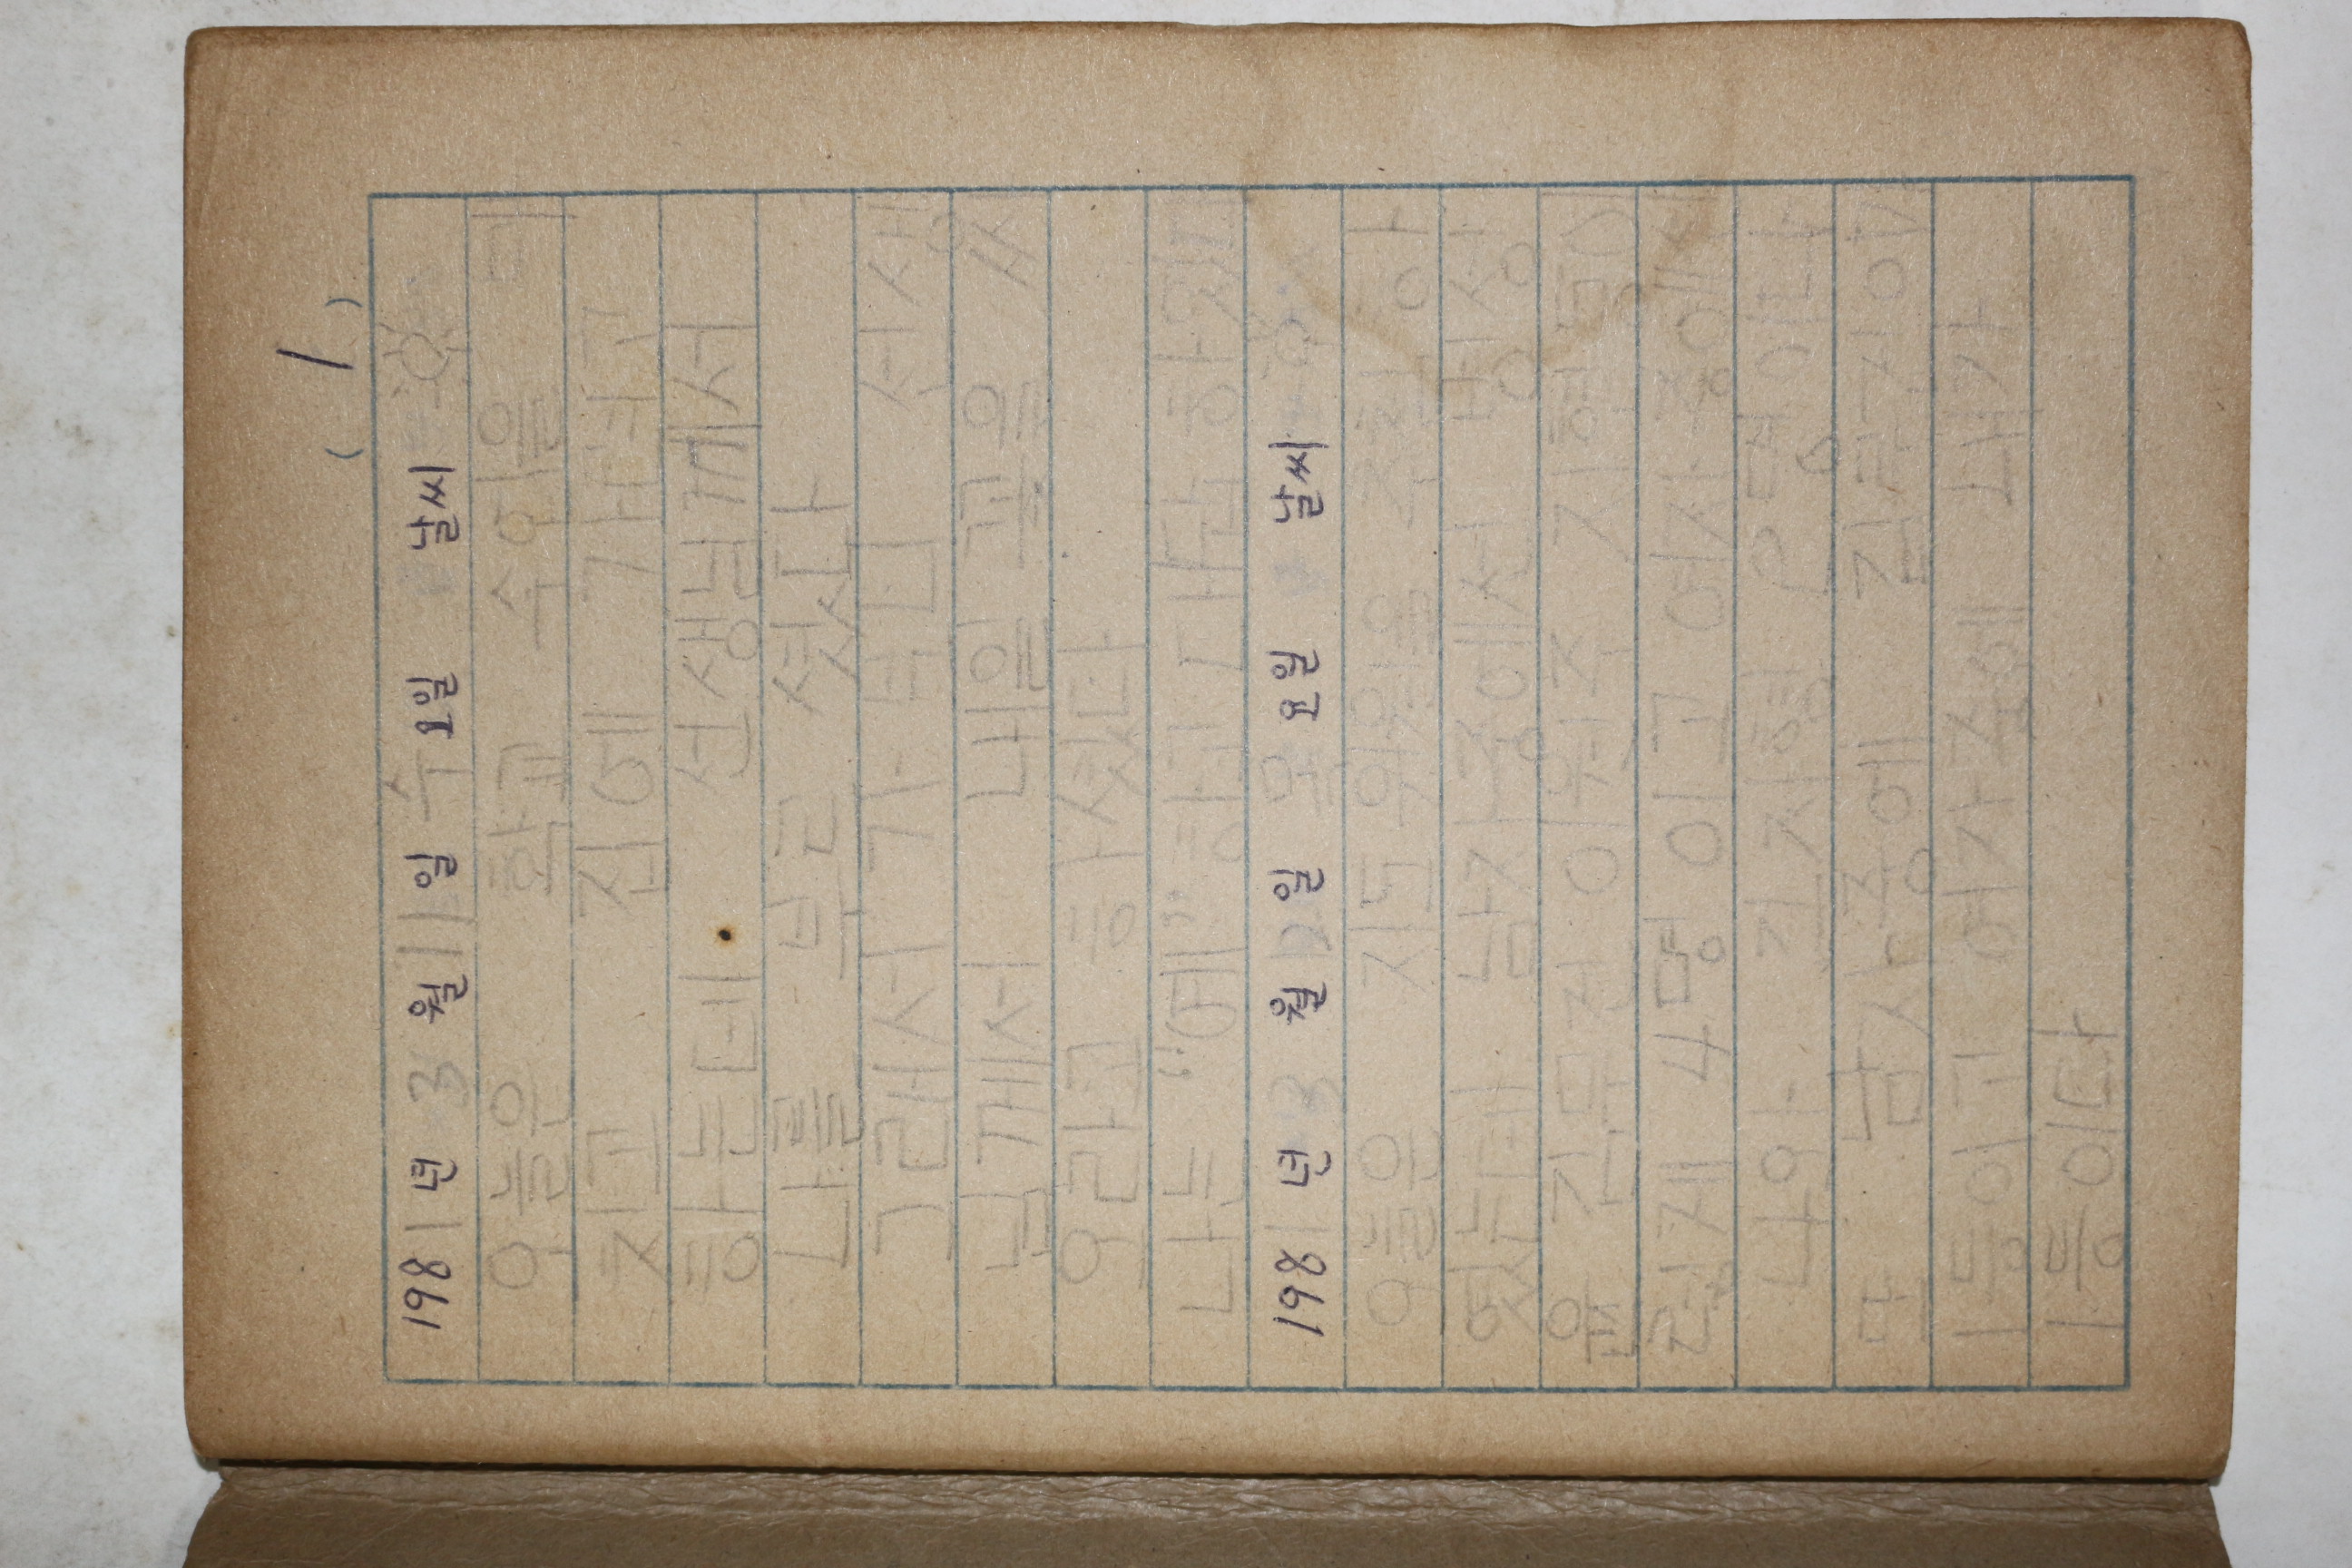 ( 1 )
1981년 3월 11일 수요일 날씨
오늘은 학교 수업을 마
치고 집에 가려고
하는데 선생님께서
나를 부르셨다
그래서 가보니 선생
님께서 내일 글을 써
오라고 하셨다
나는 "예" 하고 대답하였다
1981년 3월 12일 목요일 날씨
오늘은 지도위원을 하
였는데 남자중에선
이원주
4명이고 여자중에선
나와 김지형 2명이다
또 남자중에
1등이고 여자중에 내가
1등이다